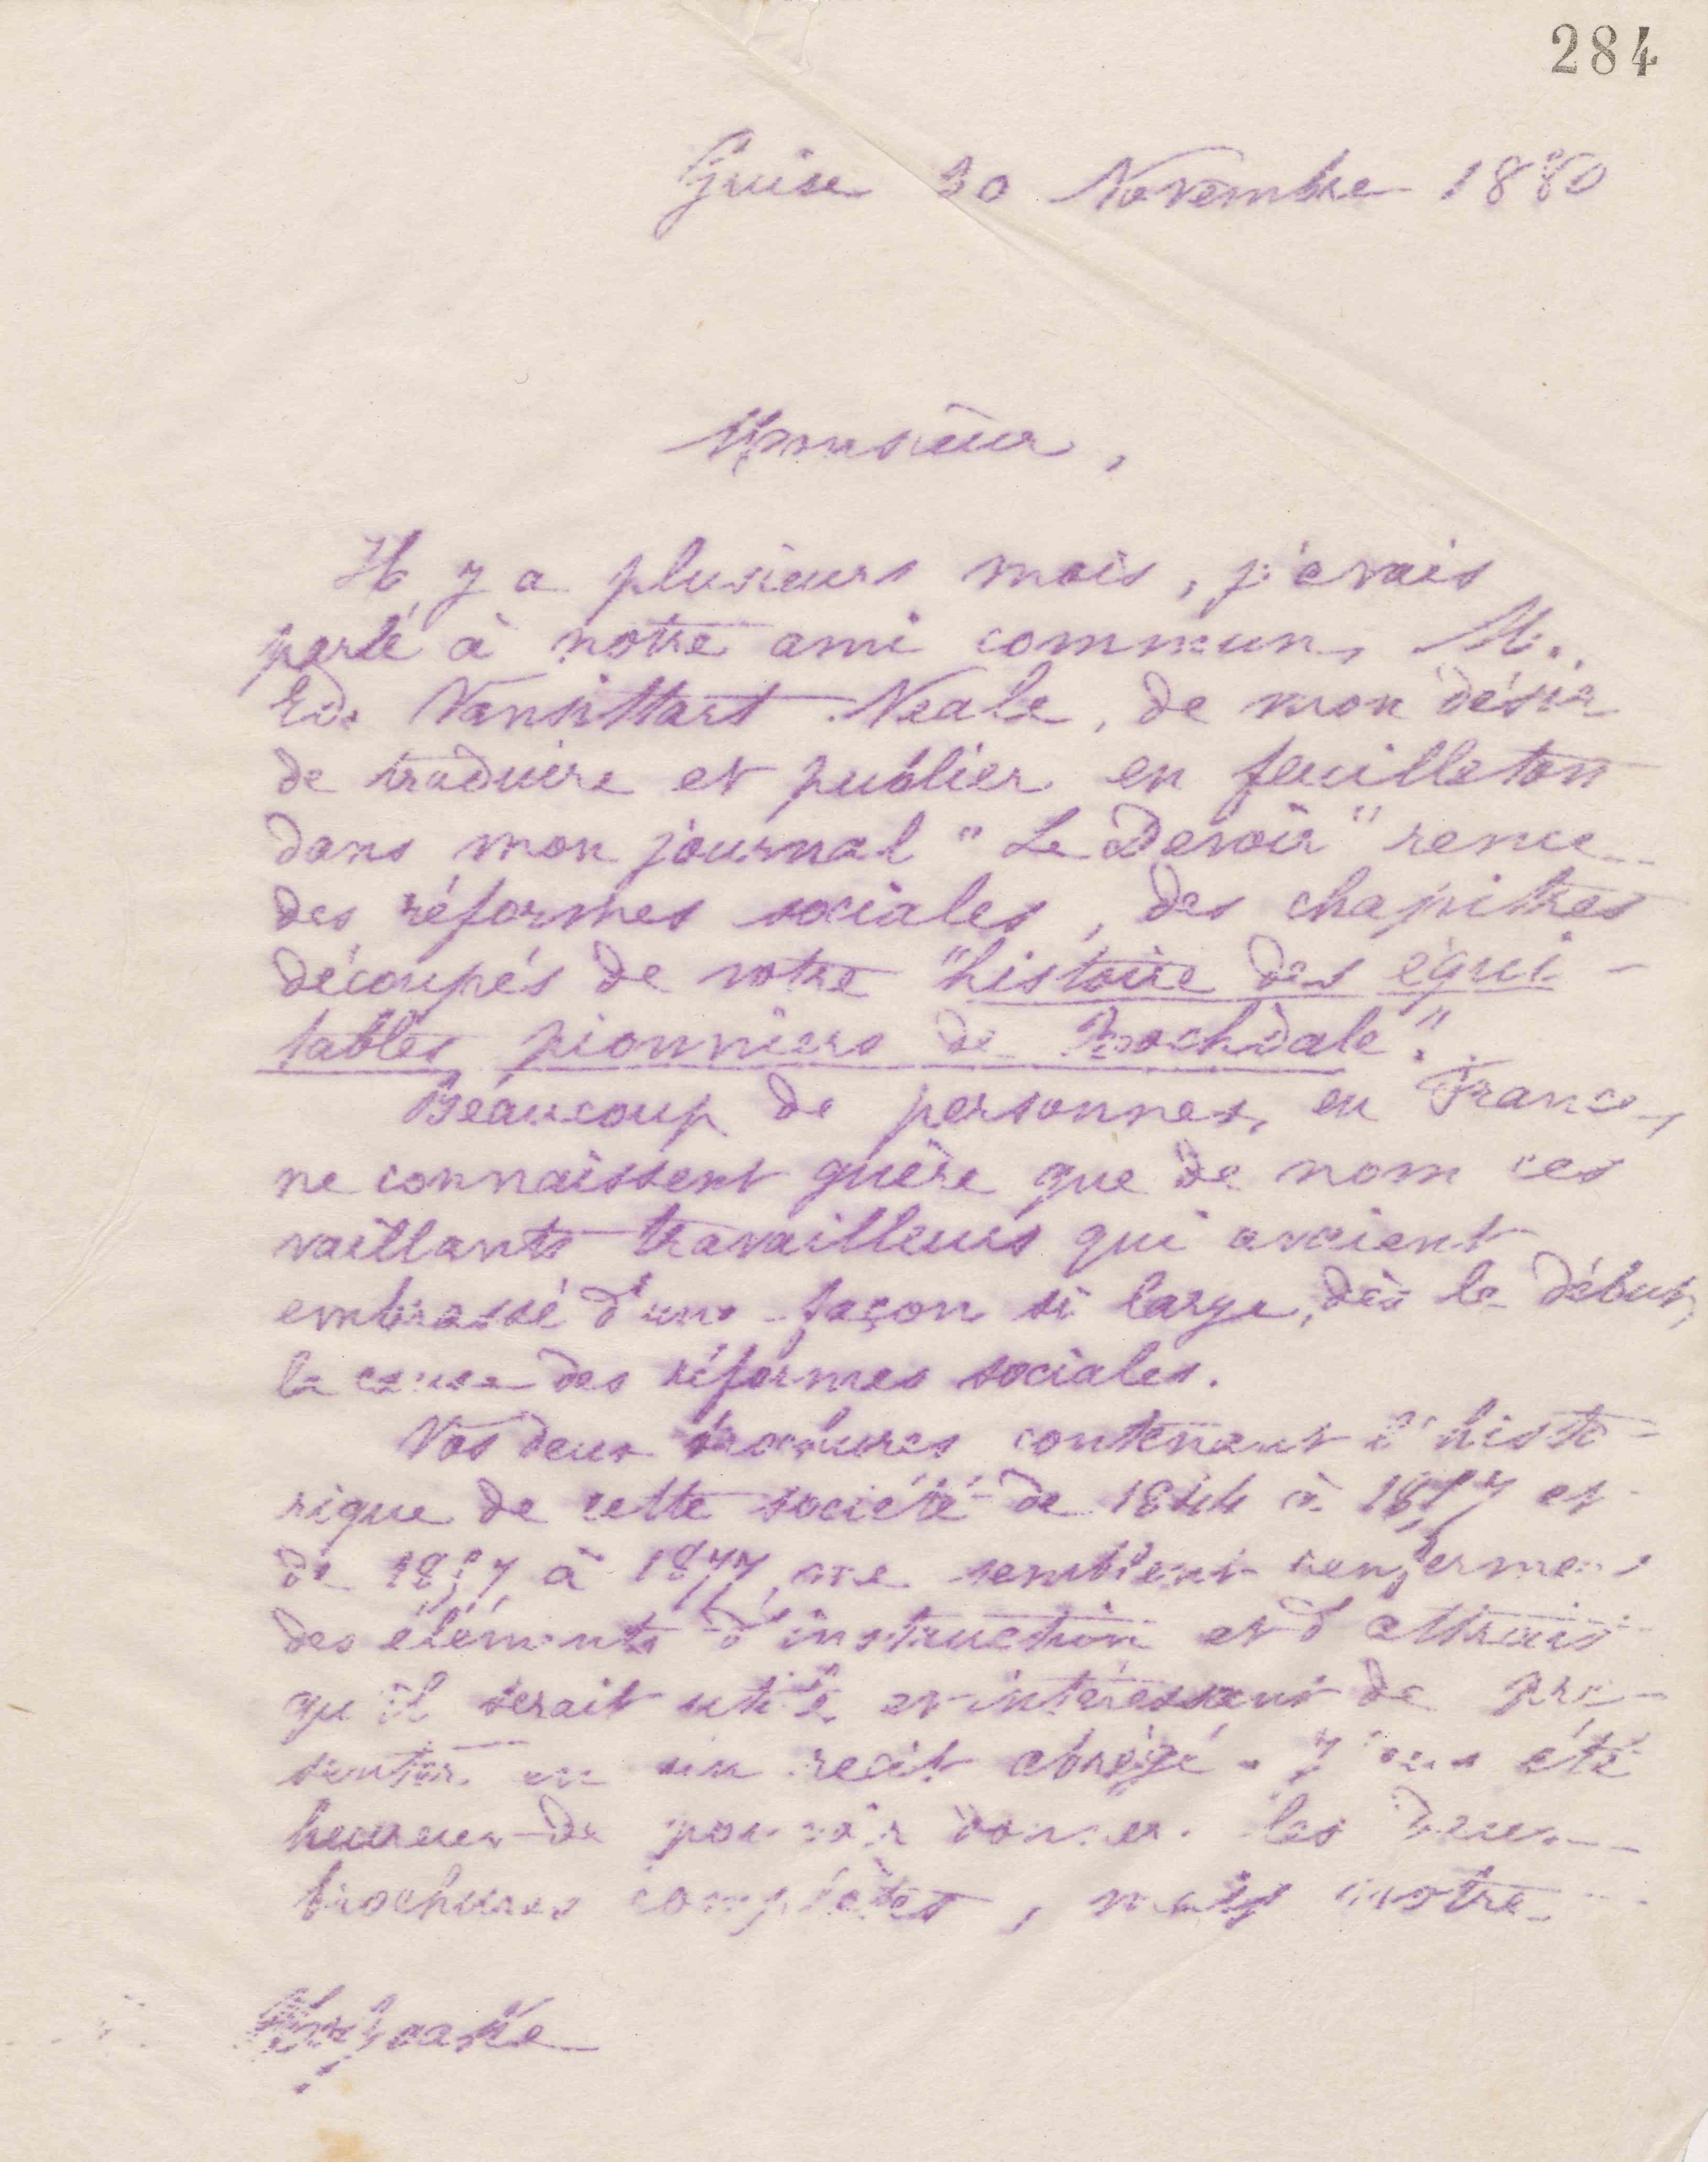 284
Guise 30 Novembre 1880
Monsieur,
Il y a plusieurs mois, j'avais
parlé à notre ami commun, M.
Ed. Vansittart Neale, de mon désir
de traduire et publier en feuilleton
dans mon journal "Le Devoir" revue
des réformes sociales, des chapitres
découpés de votre "histoire des équi-
tables pionniers de Rochdale".
Beaucoup de personnes, en France,
ne connaissent guère que de nom ces
vaillants travailleurs qui avaient
embrassé d'une façon si large, dès le début,
la cause des réformes sociales.
Vos deux brochures contenant l'histo-
rique de cette société de 1844 à 1857 et
de 1857 à 1877, me semblent renfermer
des éléments d'instruction et d'attrait
qu'il serait utile et intéressant de pré-
senter en un récit abrégé. J'eus été
heureux de pouvoir donner les deux
brochures complètes, mais notre
Holyoake